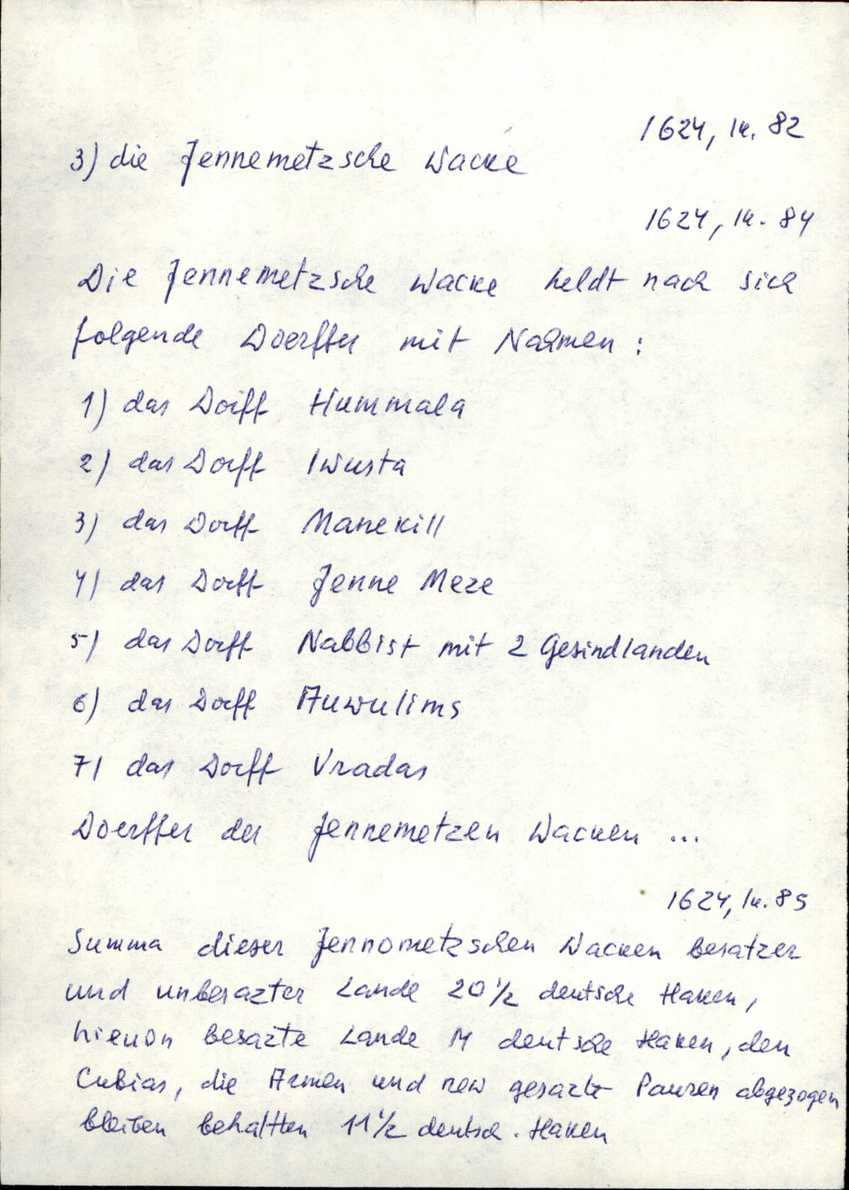 1624, lk. 82
3) die Jennemetzsche Wacke
1624, lk. 84
Die Jennemetzsche Wacke heldt nach sich
folgende Doerffer mit Nahmen :
1) das Dorff Hummala
2) das Dorff Iwusta
3) das Dorff Manekill
4) das Dorff Jenne Meze
5) das Dorff Nabbist mit 2 Gesindlanden
6) das Dorff Auwulims
7) das Dorff Vradas
Doerffer der Jennemetzen Wacken ...
1624, lk. 85
Summa dieser Jennometzschen Wacken besatzer
und unbesazter Lande 20 1/2 deutsche Haken,
hieuon besazte Lande deutsche Haken, den
Cubias, die Armen und new gesazte Pauren abgezogen
bleiben behaltten 11 1/2 deutsch. Haken